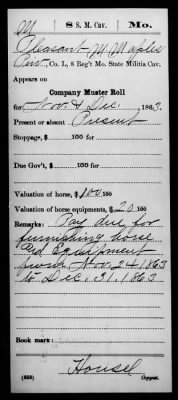 M | 8 S. M. Cav. | Mo.
Pleasant M. Maples
Pvt., Co. L, 8 Reg't Mo. State Militia Cav.
Appears on
Company Muster Roll
for Nov. & Dec., 1863.
Present or absent Present
Stoppage, $ 100 for
Due Gov't, $ 100 for
Valuation of horse, $ 100 100
Valuation of horse equipments, $ 20 100
Remarks: Pay due for
furnishing horse
and Equipment
from Nov. 24 1863
to Dec. 31, 1863
Book mark:
Housel
(859) Copyist.